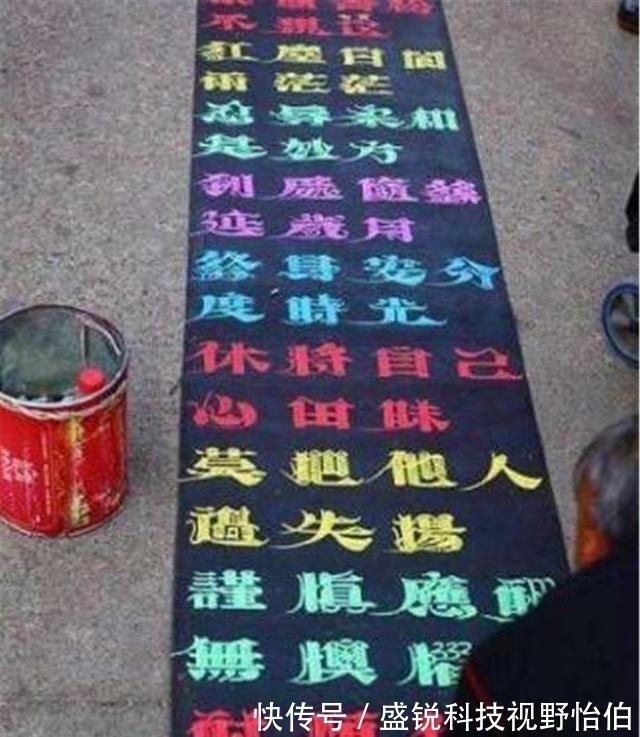 不
紅塵白
兩茫茫
忍辱柔和
是妙方
到處隨緣
延歲月
終身安分
度時光
休將自己
心田昧
莫把他人
過失揚
謹慎應
無懊惱
快传号 / 盛锐科技视野怡伯